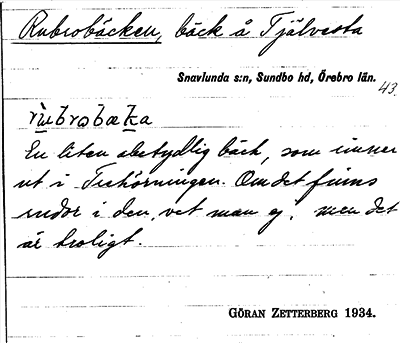 Rubrobäcken, bäck å Tjälvesta
Snavlunda s:n, Sundbo hd, Örebro län.
43.
En liten obetydlig bäck, som rinner
ut i Trehörningen. Om det finns
rudor i den, vet man ej, men det
är troligt.
GÖRAN ZETTERBERG 1934.